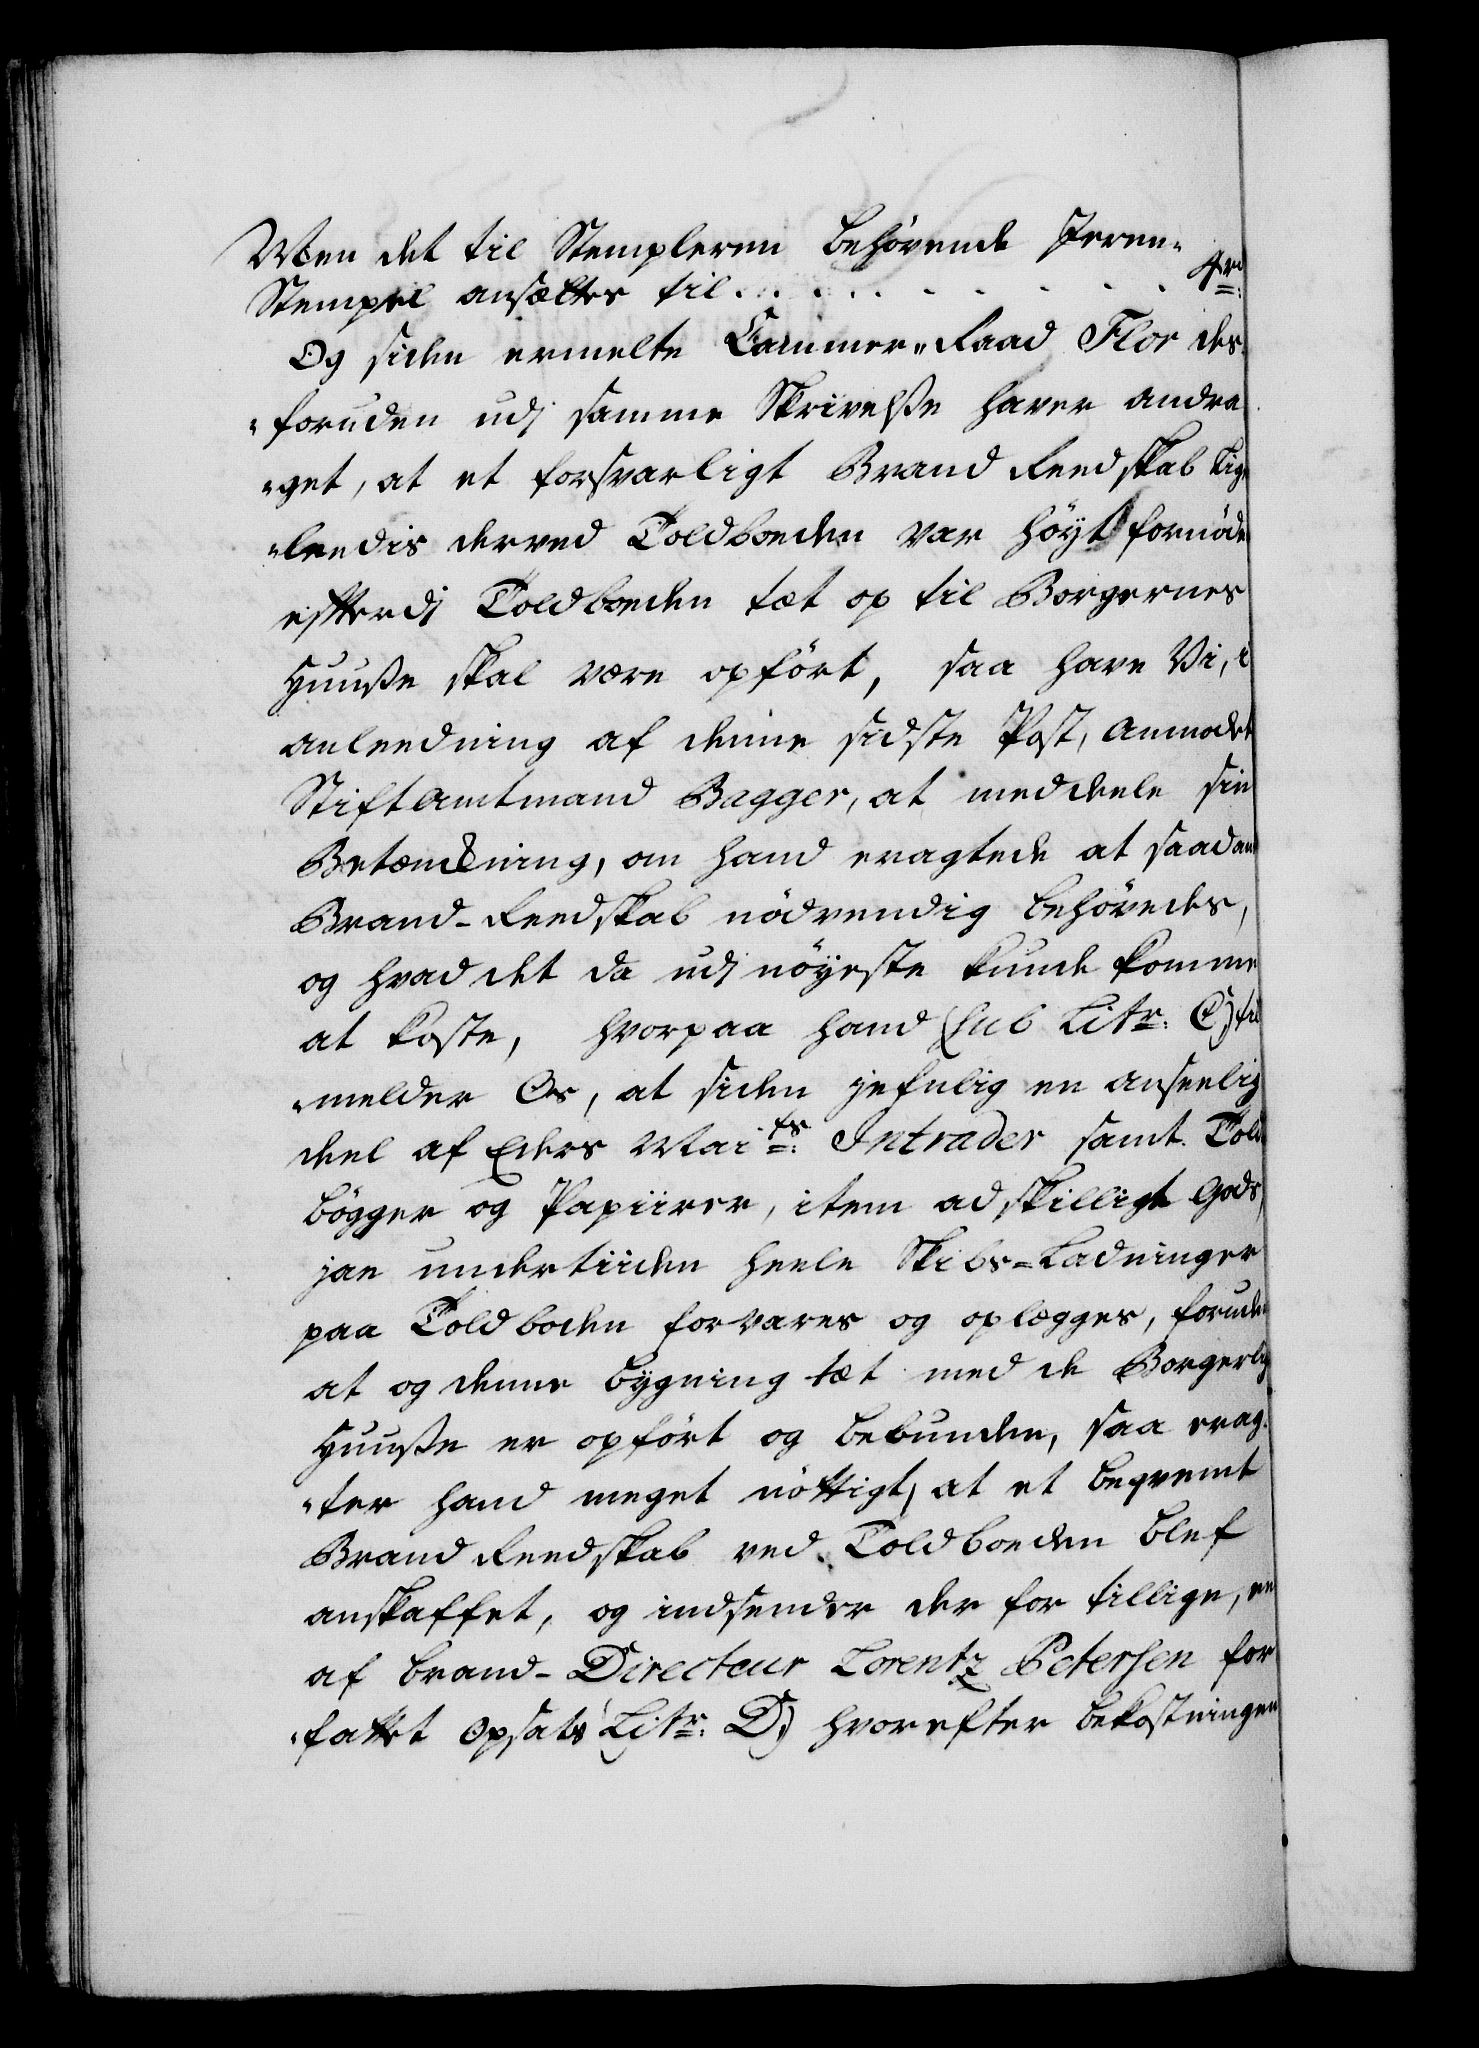 Men det til Stempleren behøvende Jeren-
Stempel ansættes til . . . . . . . . . . 4rd:
Og siden ermelte Cammer-Raad Flor des-
-foruden udj samme Skrivelse haver andra-
-get, at et forsvarligt Brand Reedskab lige-
-leedis derved Toldboeden var høyt fornøden
efterdj Toldboeden tæt op til Borgernes
Huuse skal være opført, saa have Vi, i
anleedning af denne sidste Post, anmodet
Stiftamtmand Bagger, at meddeele sin
Betænckning, om hand eragtede at saadant
Brand-Reedskab nødvendig behøvedes,
og hvad det da udj nøyeste kunde komme
at koste, hvorpaa hand (sub Litr: C) til
-melder Os, at siden jefnlig en anseelig
deel af Eders Mai.ts Intrader samt Told-
bøgger og Papiirer, item adskilligt Gods,
jae undertiiden heele Skibs-Ladninger
paa Toldboden forvares og oplægges, foruden
at og denne bygning tæt med de Borgerlige
Huuse er opført og bebunden, saa erag-
-ter hand meget nøttigt, at et beqvemt
Brand Reedskab ved Toldboeden blef
anskaffet, og indsender der for tillige, en
af brand-Directeur Lorentz Petersen for
-fattet Opsats Litr: D) hvorefter bekostningen